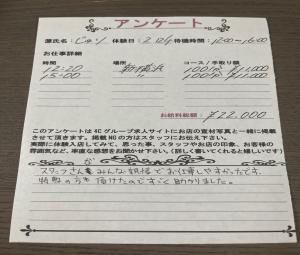 アンケート
源氏名：じゅり 体験日：2/24 待機時間：12:00～16:00
お仕事詳細
時間 場所 コース／手取り額
12:20 新横浜 100分 ¥11,000
15:00 100分 ¥11,000
お給料総額 ¥22,000
このアンケートは4Cグループ求人サイトにお店の宣材写真と一緒に掲載
させて頂きます。掲載NGの方はスタッフにお伝え下さい。
実際に体験入店してみて、思った事、スタッフやお店の印象、お客様の
雰囲気など、率直な感想をお聞かせ下さい。（詳しく書いてくれると嬉しいです）
スタッフさんがみんな親切でお仕事しやすかったです。
も頂けたのですごく助かりました。